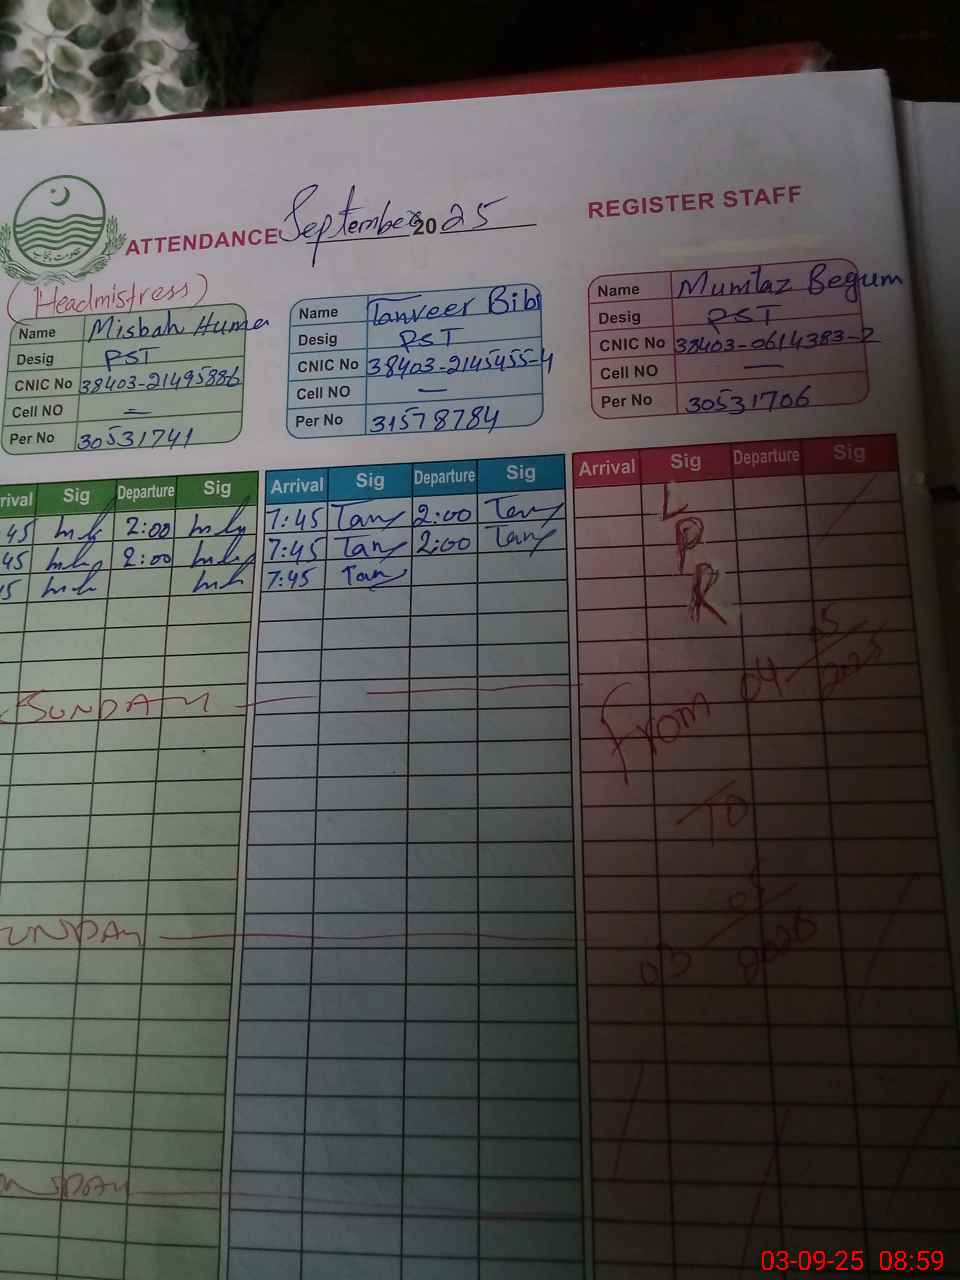 ATTENDANCE September 2025 REGISTER STAFF
(Headmistress)
Name Misbah Huma
Desig PST
CNIC No 38403-21495886
Cell NO —
Per No 30531741
Name Tanveer Bibi
Desig PST
CNIC No 38403-2145455-4
Cell NO —
Per No 31578784
Name Mumtaz Begum
Desig PST
CNIC No 38403-0614383-2
Cell NO —
Per No 30531706
rival Sig Departure Sig
45 2:00
45 2:00
15
SUNDAY
UNDAY
Arrival Sig Departure Sig
7:45 Tan 2:00 Tan
7:45 Tan 2:00 Tan
7:45 Tan
Arrival Sig Departure Sig
L
P
R
From 04-05/2025
To
03-05/2026
03-09-25 08:59